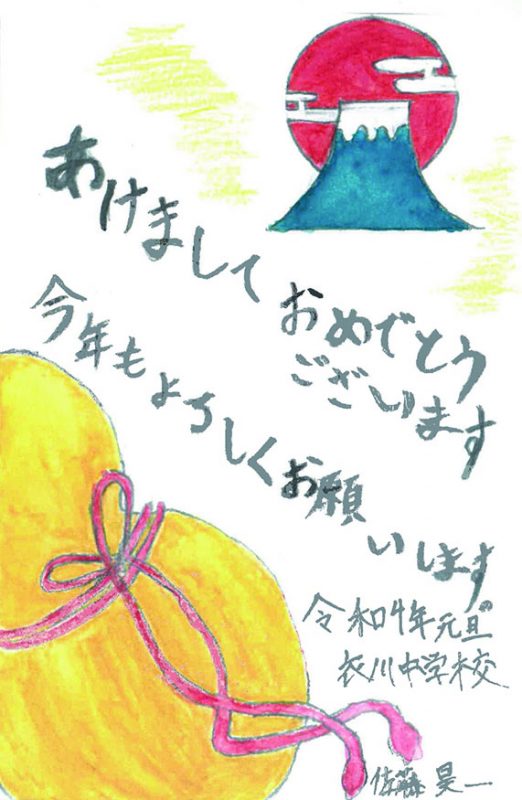 あけまして
おめでとう
ございます
今年もよろしくお願
いします
令和4年元旦
衣川中学校
佐藤 昊一